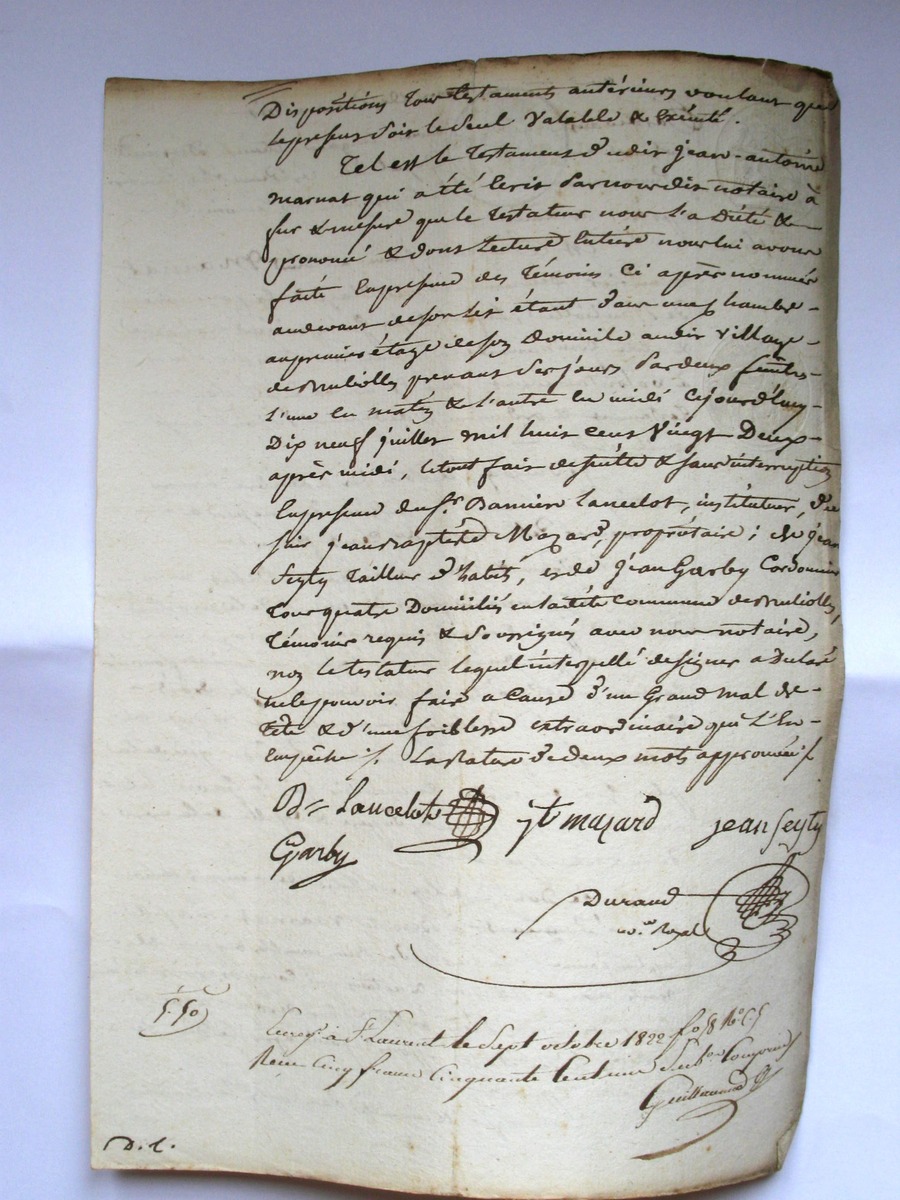 Dispositions tous testaments antérieurs voulant que
le present soit le seul valable & exécuté.
Tel est le testament dudit jean-antoine
marnat qui a été écrit par nous dit notaire à
fur & mesure que le testateur nous l'a dicté &
prononcé & dont lecture entière nous lui avons
faite en presence des témoins ci après nommés
au devant de son lit étant dans une chambre
au premier étage de son domicile audit village
de prenant ses jours par deux fenêtres
l'une en matin & l'autre en midi cejourd'huy
Dix neuf juillet mil huit cent vingt Deux
après midi, le tout fait de suitte & sans interruption
En presence de sr. Lancelot, instituteur, de
sair jean baptiste Mazard, propriétaire; de jean
Seyty tailleur d'habits, et de jean Garby Cordonnier
tous quatre Domiciliés en ladite commune de
témoins requis & soussignés avec nous notaire,
non le testateur lequel interpellé de signer a Déclaré
ne le pouvoir faire a cause d'un Grand mal de
tête & d'une foiblesse extraordinaire qui l'En
Empêche ./. La rature de deux mots approuvée ./.
Bre Lancelot jt mazard jean Seyty
Garby
Durand
nre Royal
5.50
Enregé à St Laurent le Sept octobre 1822 fo 58
Reçu Cinq francs Cinquante Centimes
Guillaumard
D. L.